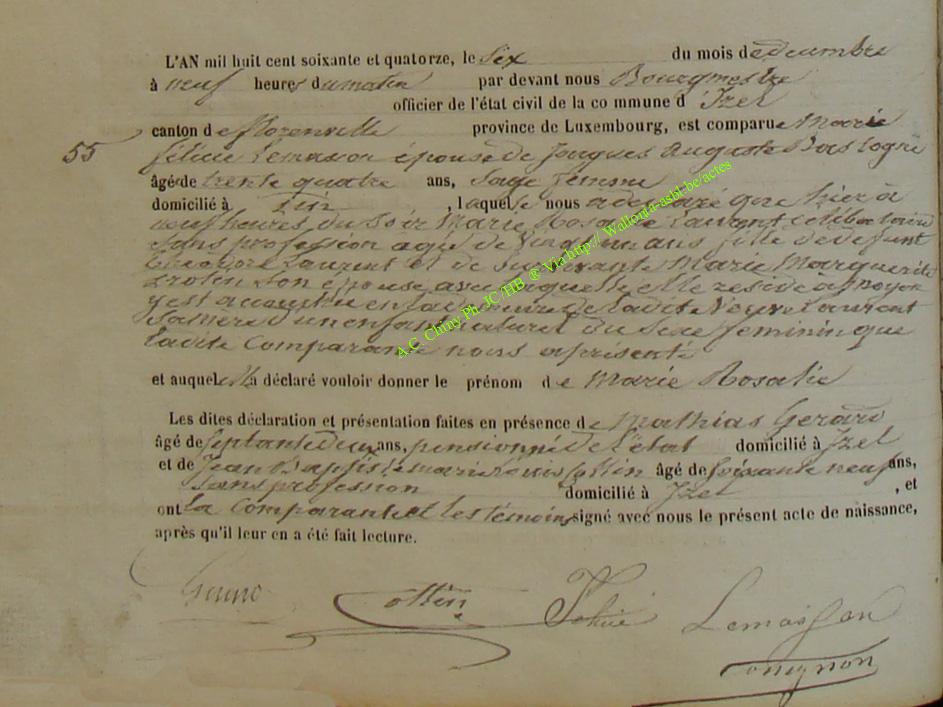 L'AN mil huit cent soixante et quatorze, le Six du mois de decembre
à neuf heures du matin par devant nous Bourgmestre
officier de l'état civil de la commune d'Izel
canton de florenville province de Luxembourg, est comparue Marie
55
félicie Lemasson épouse de Jacques Auguste Bastogne
âgée de trente quatre ans, Sage femme
domicilié à , laquelle nous a declaré que hier à
neuf heures du Soir Marie Rosalie Laurent célibataire
Sans profession agée de ans fille de defunt
Theodore Laurent et de Survivante Marie Marguerite
son épouse avec laquelle elle reside a
y est accouchée en la de ladite Veuve Laurent
Sa mère d'un enfant naturel du Sexe féminin que
Ladite Comparante nous a présenté
et auquel elle a déclaré vouloir donner le prénom de Marie Rosalie
Les dites déclaration et présentation faites en présence de Mathias Gerard
âgé de Septante deux ans, pensionné de l'état domicilié à Izel
et de Jean Baptiste Collin âgé de Soixante neuf ans,
Sans profession domicilié à Izel , et
ont La Comparante et les témoins signé avec nous le présent acte de naissance,
après qu'il leur en a été fait lecture.
A.C. Chiny Ph. JC/HB ® Via http:// Wallonia-asbl-be/actes
Collin Lemasson